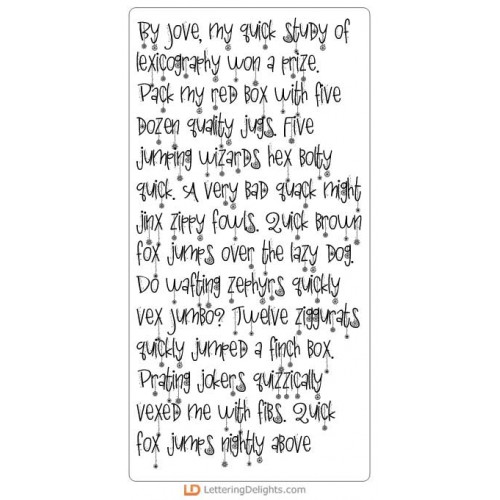 By Jove, my quick study of
lexicography won a prize.
Pack my red box with five
dozen quality jugs. Five
jumping wizards hex bolty
quick. A very bad quack might
jinx zippy fowls. Quick brown
fox jumps over the lazy dog.
Do wafting zephyrs quickly
vex Jumbo? Twelve ziggurats
quickly jumped a finch box.
Prating jokers quizzically
vexed me with fibs. Quick
fox jumps nightly above
LD LetteringDelights.com